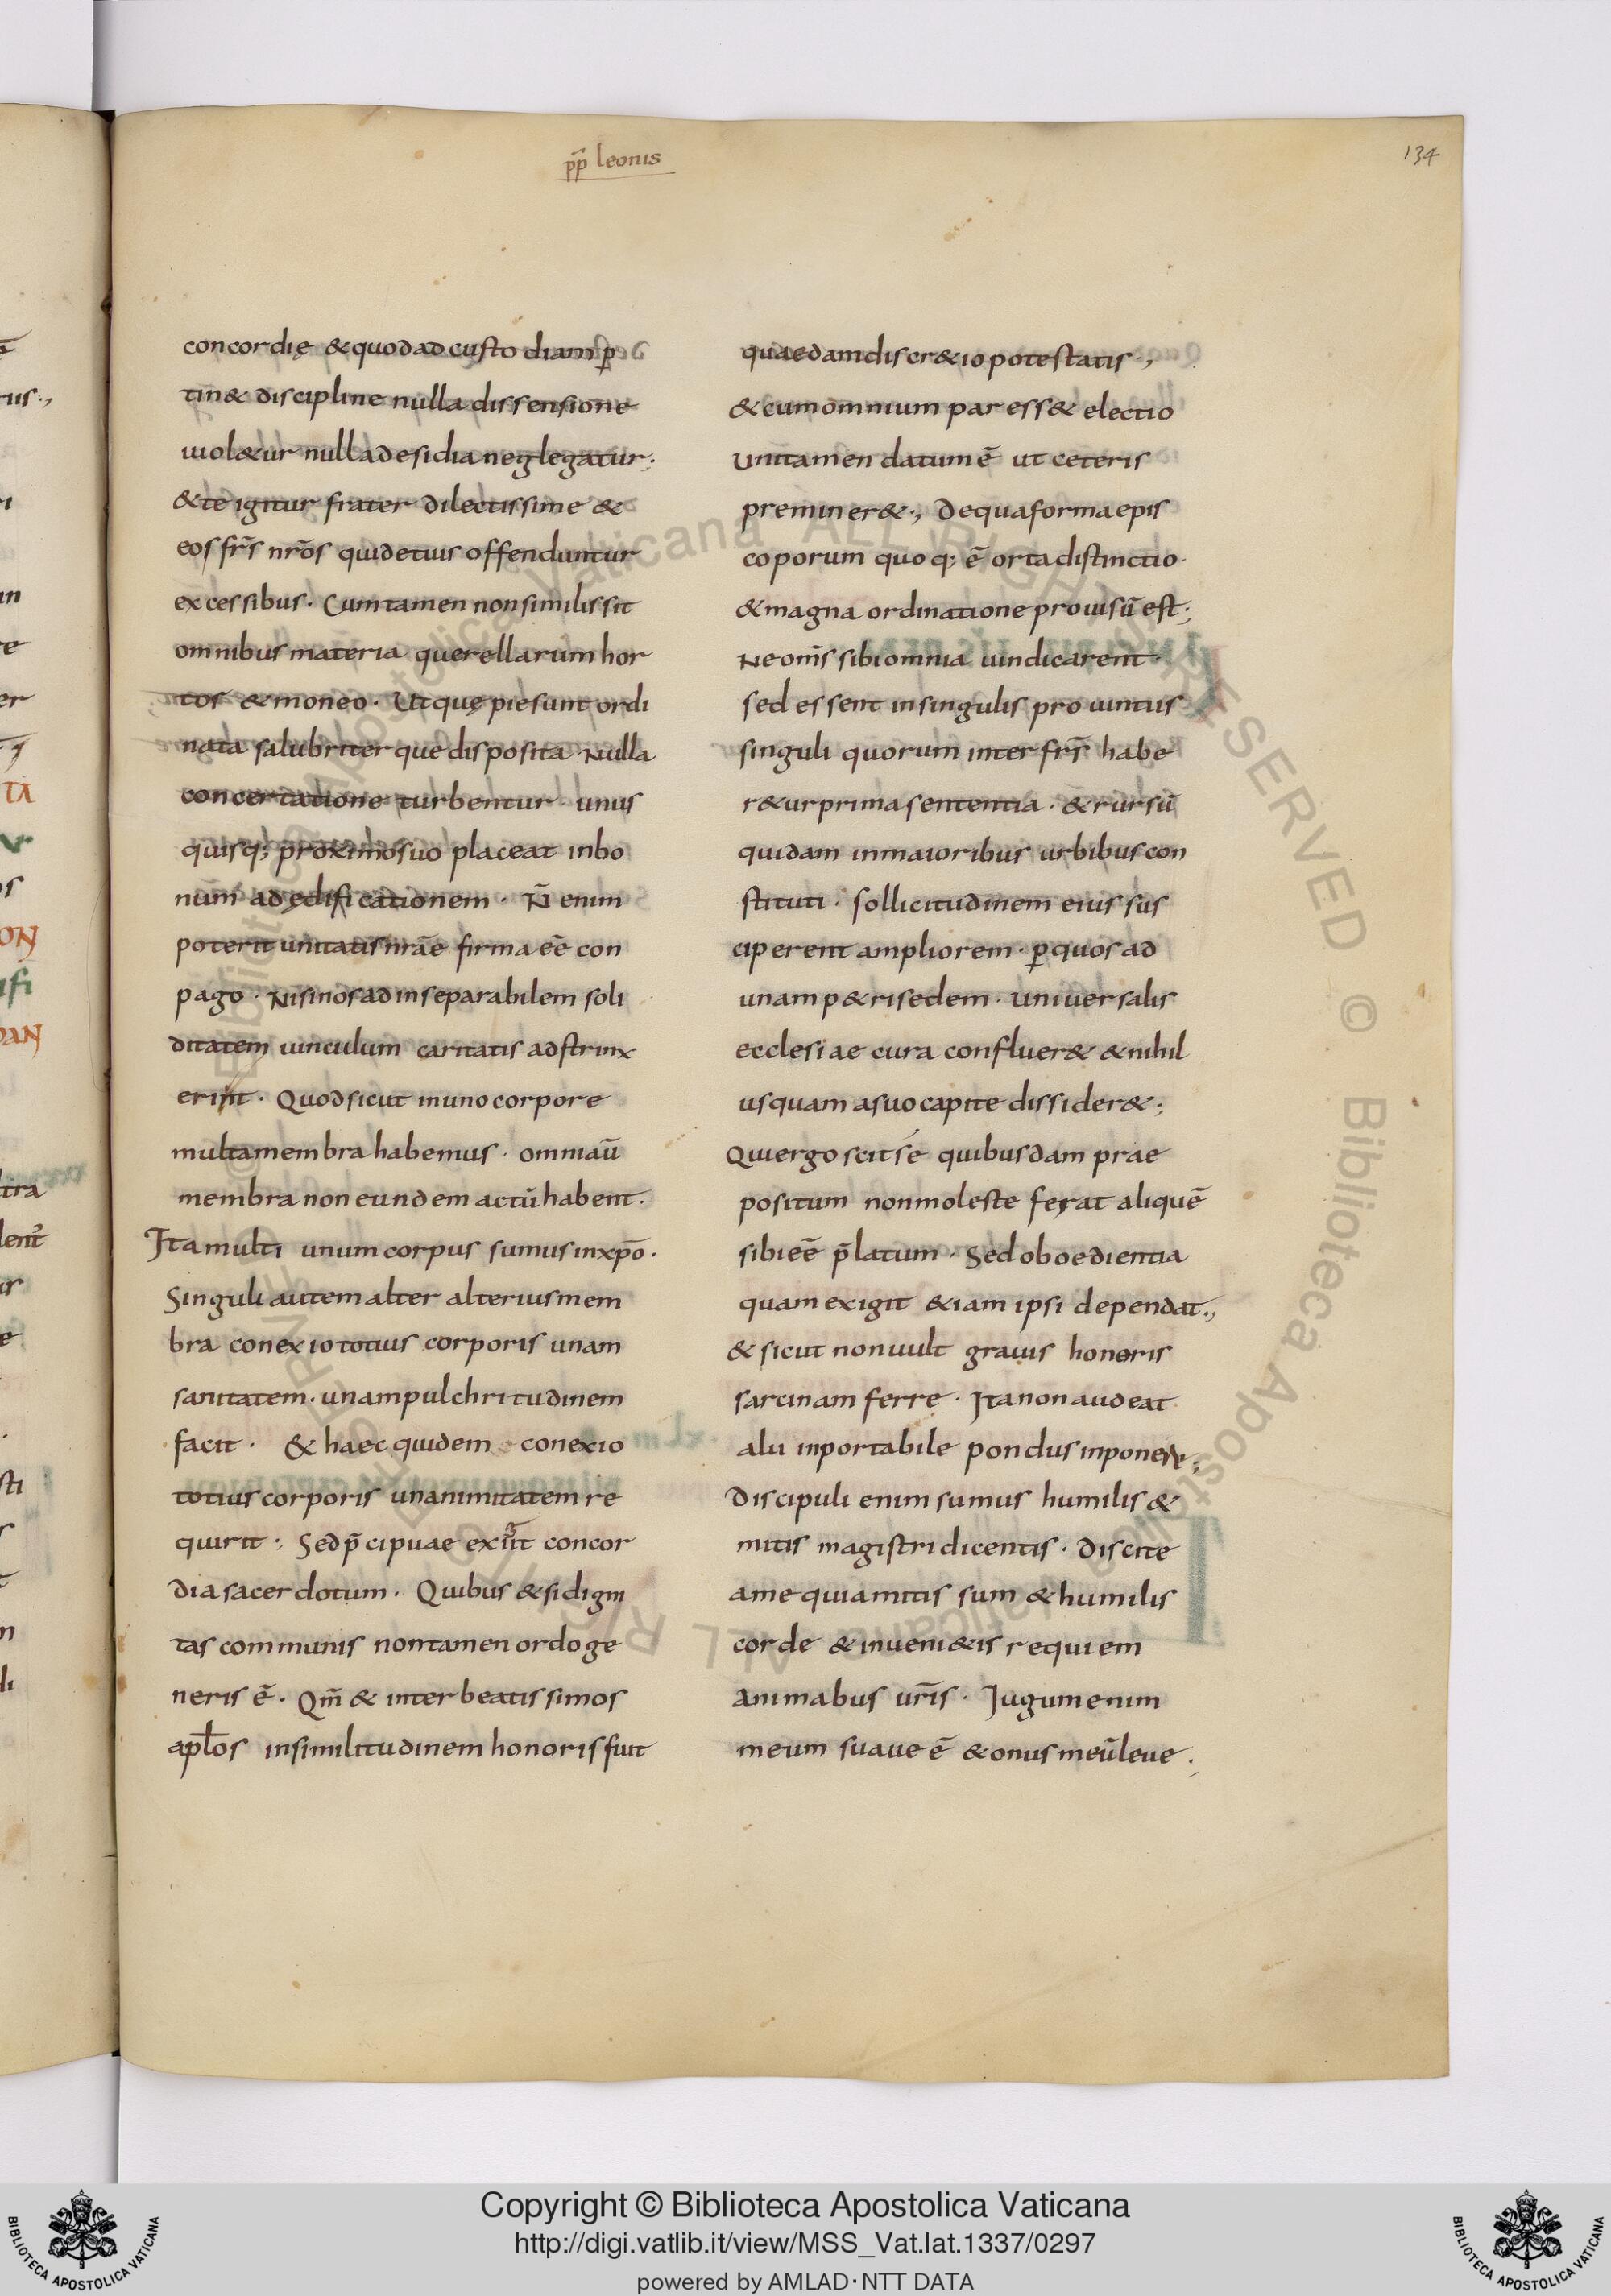 pp̄ leonis
134
concordię & quod ad custodiam p̱
tin& discipline nulla dissensione
uiol&ur nulla desidia neglegatur;
& te igitur frater dilectissime &
eos fr̄s nr̄os qui de tuis offenduntur
excessibus · Cum tamen non similis sit
omnibus materia querellarum hor
tos & moneo · Ut quę pie sunt ordi
nata salubriter que disposita · Nulla
concertatione turbentur · unus
quisq; proximo suo placeat in bo
num ad edificationem · N̄ enim
poterit unitatis nr̄ae firma eē con
pago · Nisi nos ad inseparabilem soli
ditatem uinculum caritatis adstrinx
erint · Quod sicut in uno corpore
multa membra habemus · omnia ū
membra non eundem actū habent ·
Ita multi unum corpus sumus in xp̄o ·
Singuli autem alter alterius mem
bra conexio totius corporis unam
sanitatem · unam pulchritudinem
facit · & haec quidem conexio
totius corporis unanimitatem re
quirit ; Sed p̄cipuae exigit concor
dia sacerdotum · Quibus & si digni
tas communis non tamen ordo ge
neris ē · Qm̄ & inter beatissimos
apl̄os in similitudinem honoris fuit
quaedam discr&io potestatis ·,
& cum omnium par ess& electio
uni tamen datum ē ut ceteris
preminer& ·, De qua forma epis
coporum quoq; ē orta distinctio ·
& magna ordinatione prouisū est ;
Ne om̄s sibi omnia uindicarent ·
sed essent in singulis prouintiis
singuli quorum inter fr̄s habe
r&ur prima sententia · & rursū
quidam in maioribus urbibus con
stituti · sollicitudinem eius sus
ciperent ampliorem · p̱ quos ad
unam p&ri sedem · uniuersalis
ecclesiae cura confluer& & nihil
usquam a suo capite dissider& ;
Qui ergo scit se quibusdam prae
positum non moleste ferat aliquē
sibi eē p̄latum · Sed oboedientia
quam exigit &iam ipsi dependat ·,
& sicut non uult grauis honeris
sarcinam ferre · Ita non audeat
alii inportabile pondus inponere ;
Discipuli enim sumus humilis &
mitis magistri dicentis · Discite
a me quia mitis sum & humilis
corde & inueni&is requiem
animabus ur̄is · Iugum enim
meum suaue ē & onus meū leue ·,
Copyright © Biblioteca Apostolica Vaticana
http://digi.vatlib.it/view/MSS_Vat.lat.1337/0297
powered by AMLAD·NTT DATA
BIBLIOTECA APOSTOLICA VATICANA
BIBLIOTECA APOSTOLICA VATICANA